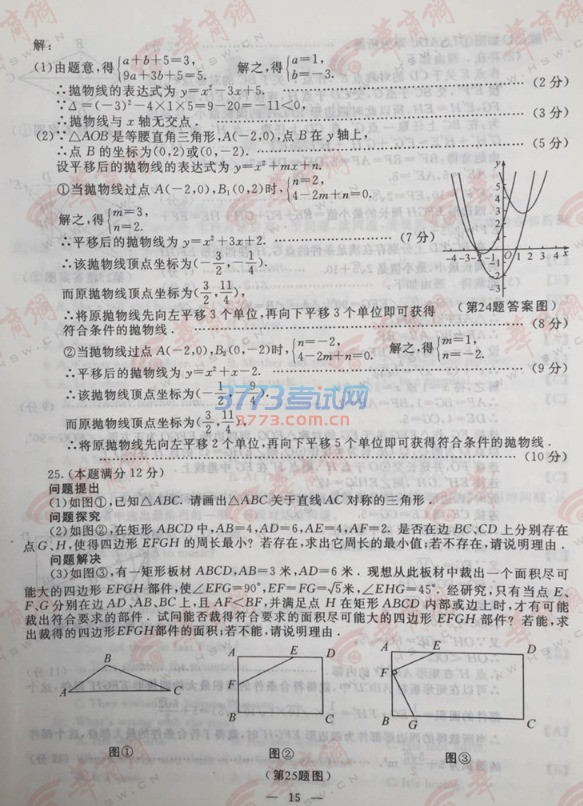 解：
(1)由题意,得{a+b+5=3, 9a+3b+5=5. 解之,得{a=1, b=-3.
∴抛物线的表达式为 y=x²-3x+5. (2分)
∵Δ=(-3)²-4×1×5=9-20=-11<0,
∴抛物线与x轴无交点. (3分)
(2)∵△AOB是等腰直角三角形,A(-2,0),点B在y轴上,
∴点B的坐标为(0,2)或(0,-2). (5分)
设平移后的抛物线的表达式为 y=x²+mx+n,
①当抛物线过点A(-2,0),B₁(0,2)时,{n=2, 4-2m+n=0.
解之,得{m=3, n=2.
∴平移后的抛物线为 y=x²+3x+2. (7分)
∴该抛物线顶点坐标为(-3/2,-1/4),
而原抛物线顶点坐标为(3/2,11/4),
∴将原抛物线先向左平移3个单位,再向下平移3个单位即可获得
符合条件的抛物线. (8分)
y
5
4
3
2
1
-4 -3 -1 O 1 2 3 4 x
-3
(第24题答案图)
②当抛物线过点A(-2,0),B₂(0,-2)时,{n=-2, 4-2m+n=0. 解之,得{m=1, n=-2.
∴平移后的抛物线为 y=x²+x-2. (9分)
∴该抛物线顶点坐标为(-1/2,-9/4),
而原抛物线顶点坐标为(3/2,11/4),
∴将原抛物线先向左平移2个单位,再向下平移5个单位即可获得符合条件的抛物线.
(10分)
25.(本题满分12分)
问题提出
(1)如图①,已知△ABC. 请画出△ABC关于直线AC对称的三角形.
问题探究
(2)如图②,在矩形ABCD中,AB=4,AD=6,AE=4,AF=2. 是否在边BC、CD上分别存在
点G、H,使得四边形EFGH的周长最小？若存在,求出它周长的最小值;若不存在,请说明理由.
问题解决
(3)如图③,有一矩形板材ABCD,AB=3米,AD=6米. 现想从此板材中裁出一个面积尽可
能大的四边形EFGH部件,使∠EFG=90°,EF=FG=√5米,∠EHG=45°. 经研究,只有当点E、
F、G分别在边AD、AB、BC上,且AF<BF,并满足点H在矩形ABCD内部或边上时,才有可能
裁出符合要求的部件. 试问能否裁得符合要求的面积尽可能大的四边形EFGH部件？若能,求
出裁得的四边形EFGH部件的面积;若不能,请说明理由.
B
A C
图①
A E D
F
B C
图②
A E D
F
B G C
图③
(第25题图)
— 15 —
3773考试网
3773.com.cn
华商网